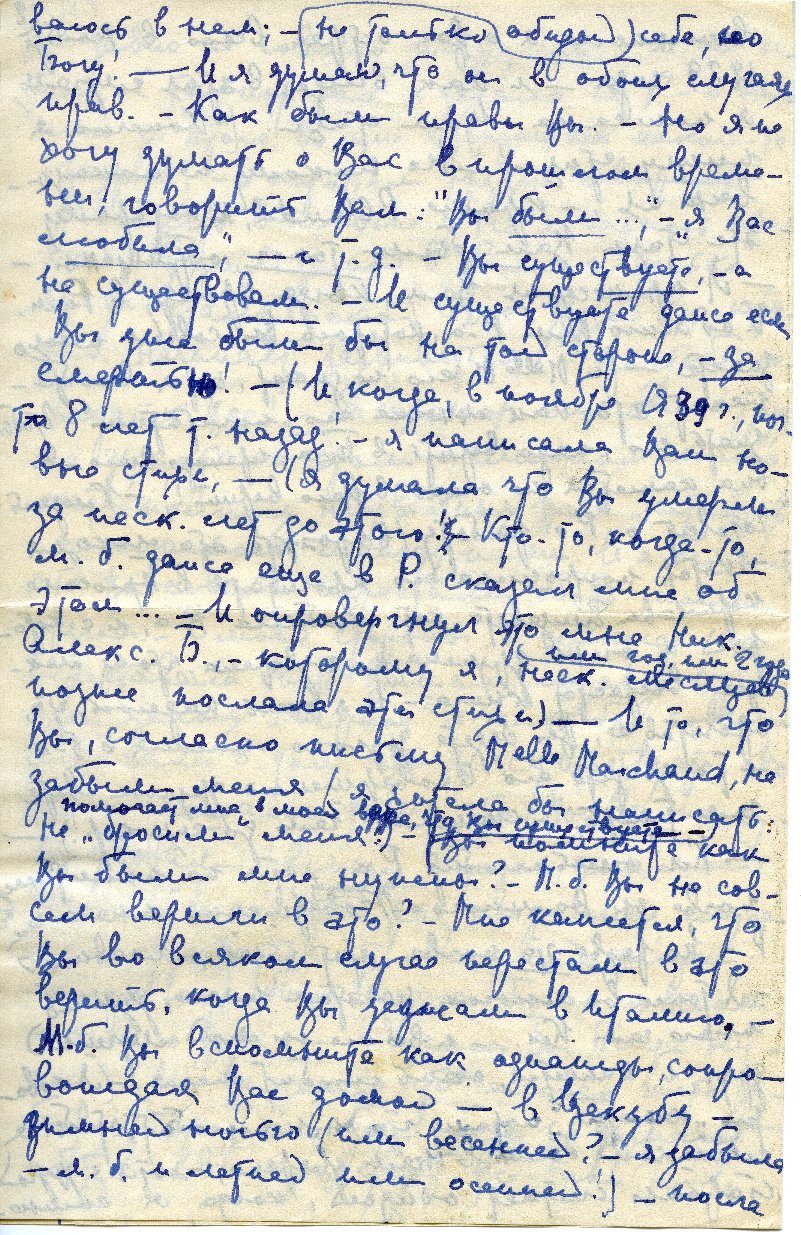 валось в нем; – не только обидой себе, но
Богу! – И я думаю, что он в обоих случаях
прав. – Как были правы Вы. – Но я не
хочу думать о Вас в прошлом време-
ни, говорить Вам: "Вы были ...", – "я Вас
любила", – и т.д. – Вы существуете, – а
не существовали. – И существуете даже если
Вы уже были бы на той стороне, – за
смертью! – (И когда, в ноябре 1939 г., поч-
ти 8 лет т. назад – я написала Вам но-
вые стихи, – (я думала что Вы умерли
за неск. лет до этого!) – Кто-то, когда-то,
м. б. даже еще в Р. сказал мне об
этом ... – И опровергнул это мне Ник.
Алекс. Б., – которому я, неск. месяцев,
или год, или 2 года
позже послала эти стихи) – И то, что
Вы, согласно письму Melle Marchand, не
забыли меня (я хотела бы написать:
помогает мне в моей вере, что Вы существуете –)
не „бросили" меня!) – (Вы помните как
Вы были мне нужны? – М.б. Вы не сов-
сем верили в это? – Мне кажется, что
Вы во всяком случае перестали в это
верить, когда Вы уезжали в Италию, –
М.б. Вы вспомните как однажды, сопро-
вождая Вас домой – в Цекубу –
зимней ночью (или весенней? – я забыла
– м. б. и летней или осенней!) – после